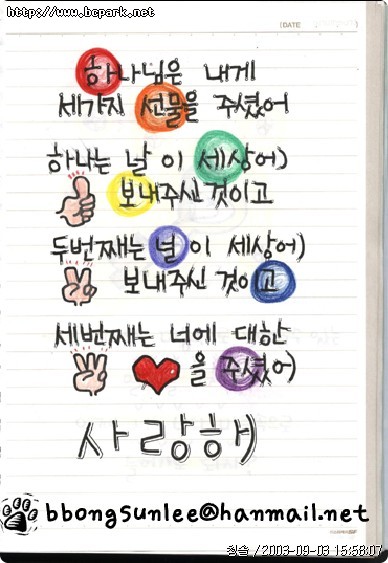 http://www.bcpark.net
(DATE
하나님은 내게
세가지 선물을 주셨어
하나는 날 이 세상에
보내주신 것이고
두번째는 널 이 세상에
보내주신 것이고
세번째는 너에 대한
을 주셨어
사랑해
bbongsunlee@hanmail.net
/2003-09-03 15:58:07